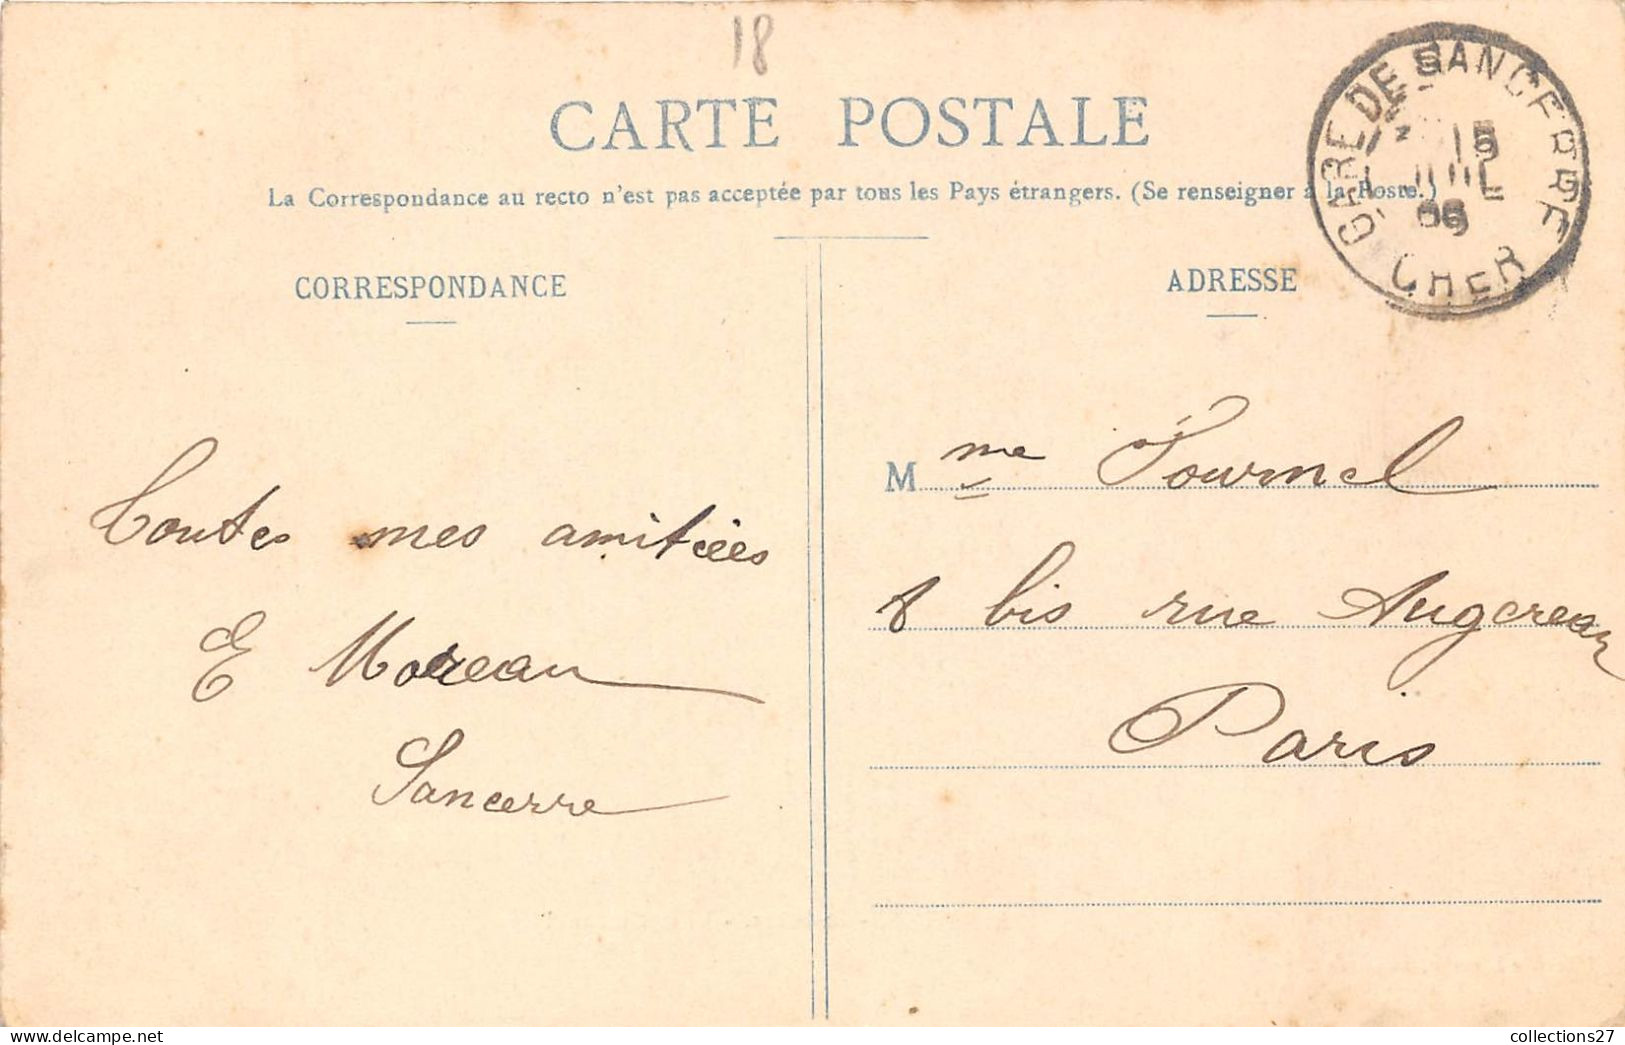 18
CARTE POSTALE
La Correspondance au recto n'est pas acceptée par tous les Pays étrangers. (Se renseigner à la Poste.)
GARE DE SANCERRE
15
JUIL
CHER
CORRESPONDANCE
ADRESSE
Toutes mes amitiées
E Moreau
Sancerre
Mme Tournel
8 bis rue Augereau
Paris
collections27